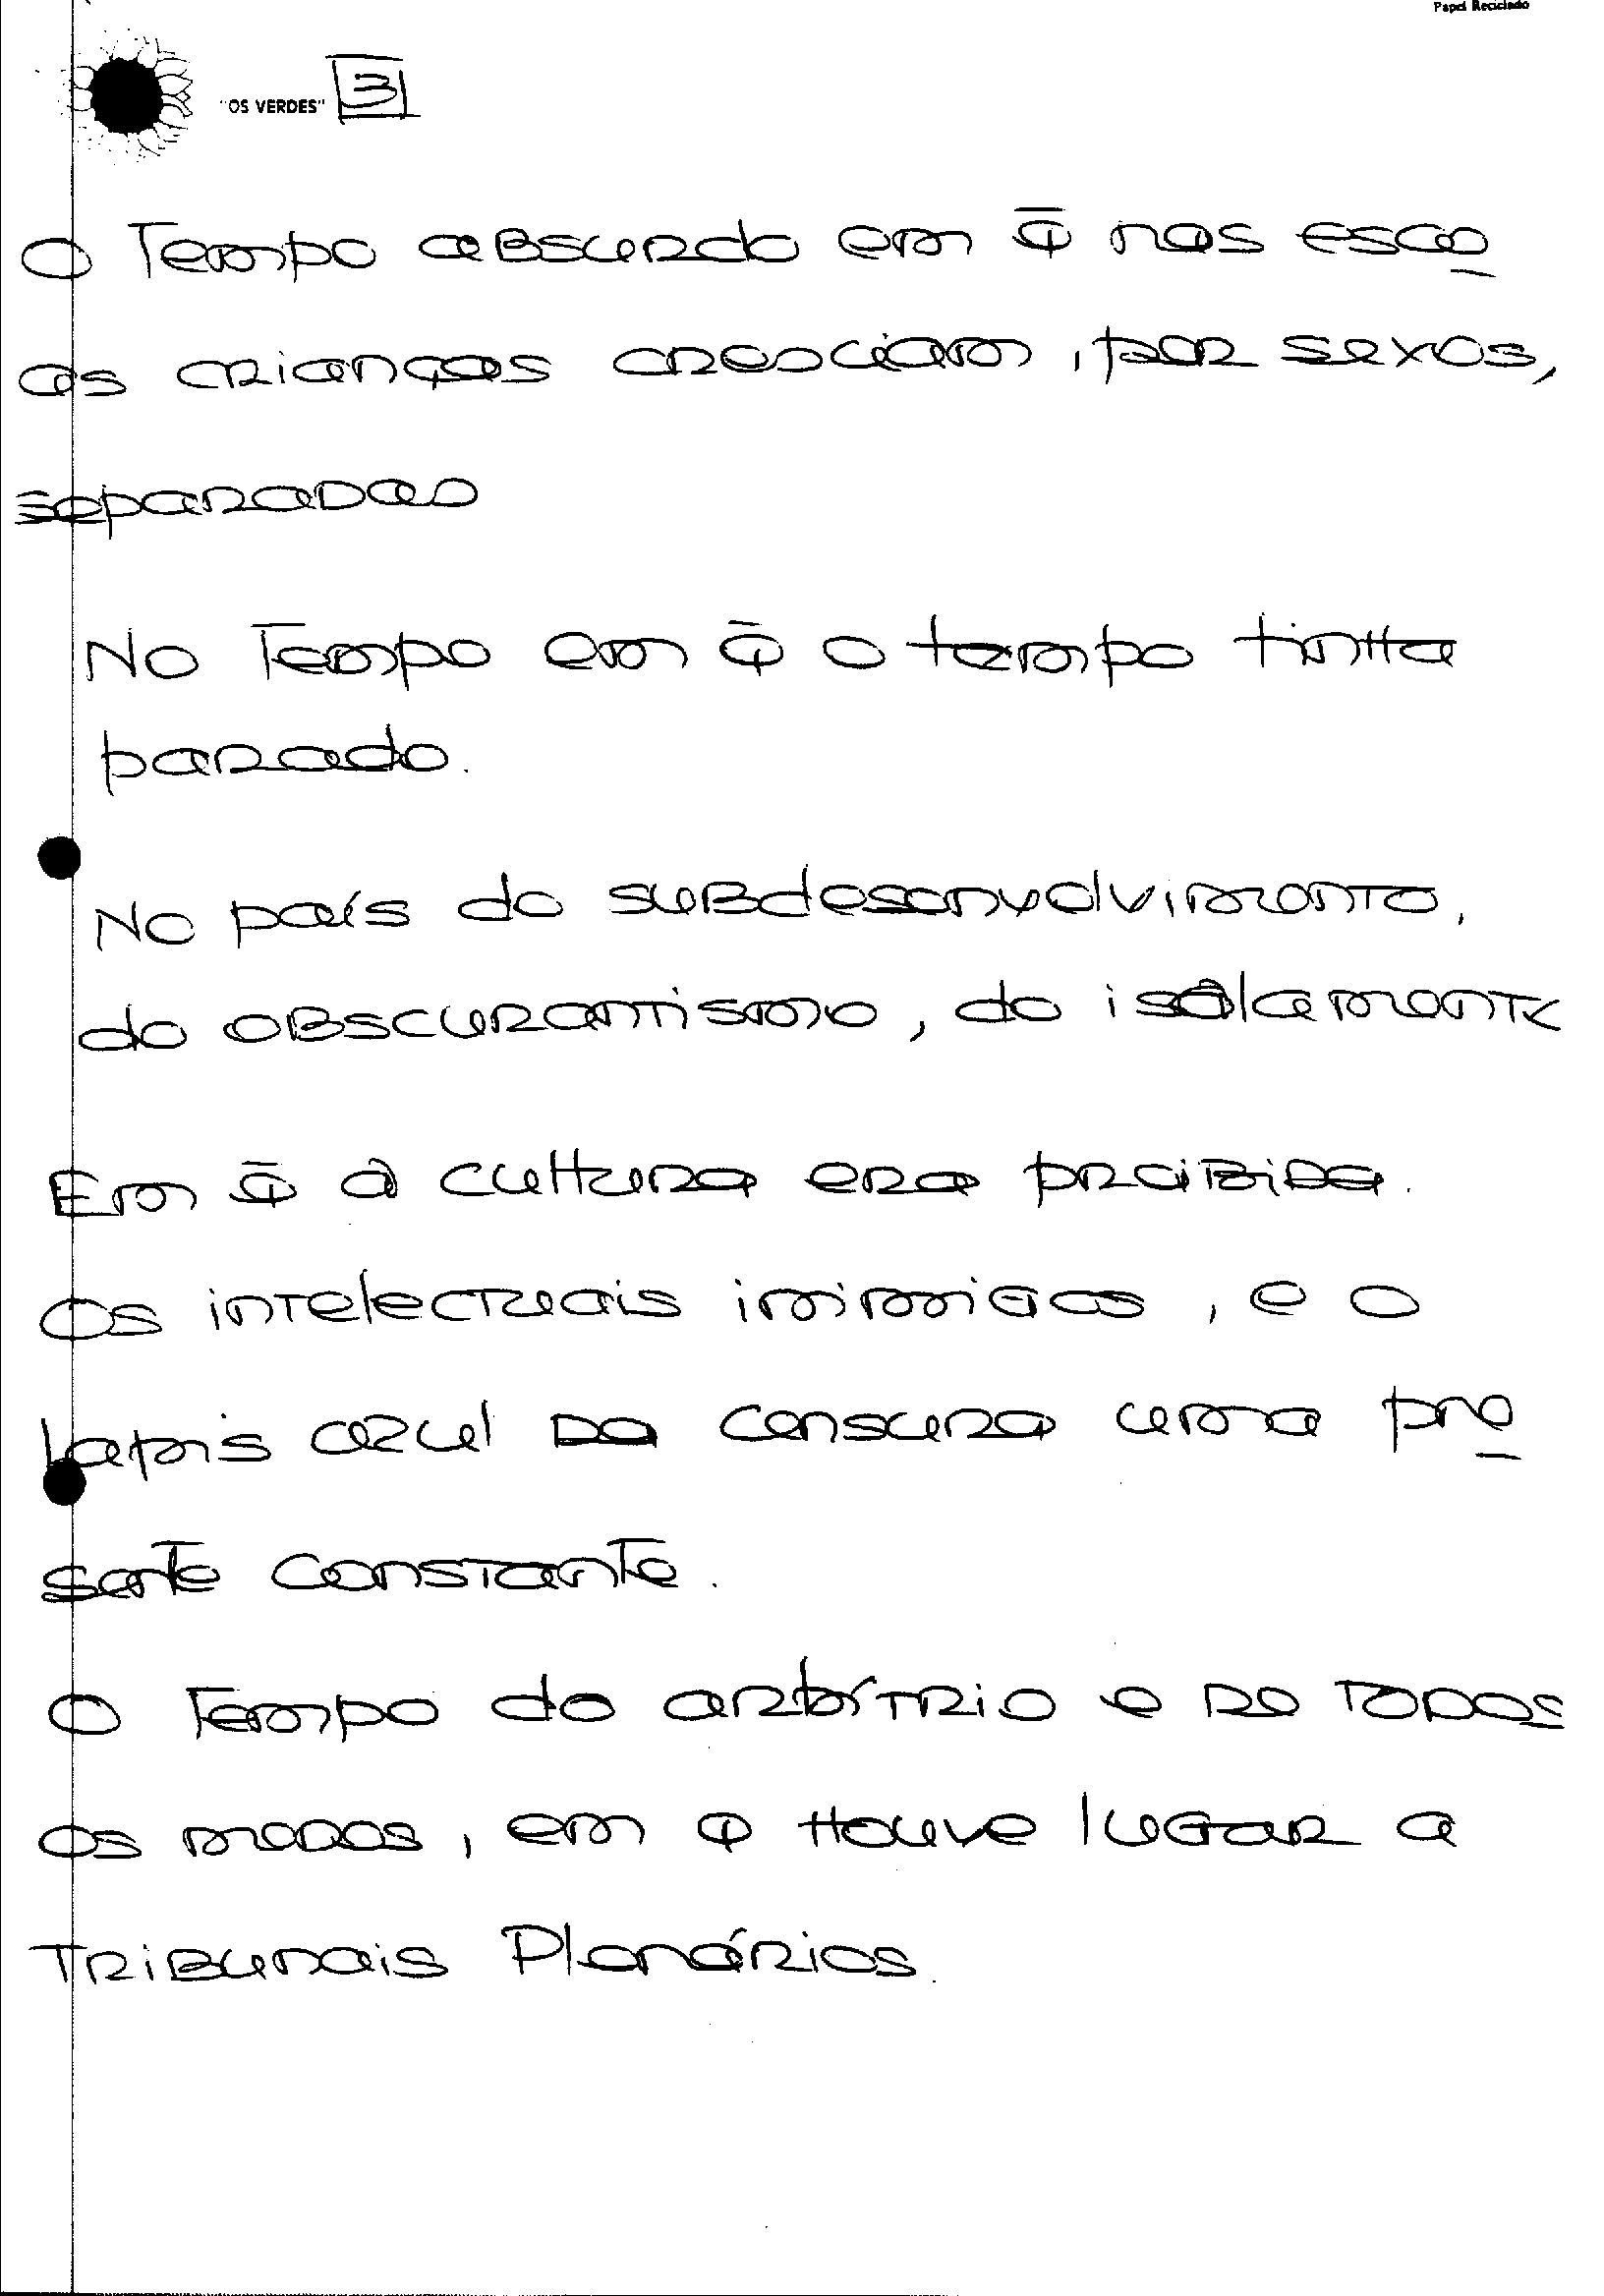 Papel Reciclado
"OS VERDES" 3
O Tempo absurdo em q̄ nas esco
as crianças cresciam, por sexos,
separadas
No Tempo em q̄ o tempo tinha
parado.
No país do subdesenvolvimento,
do obscurantismo, do isolamento
Em q̄ a cultura era proibida.
Os intelectuais inimigos, e o
lapis azul da censura uma pre
sente constante.
O Tempo do arbítrio e de todos
os modos, em q houve lugar a
Tribunais Plenários.